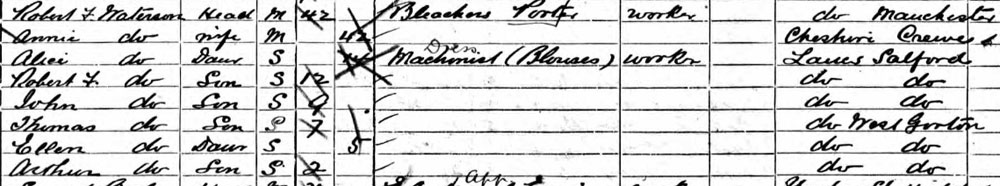 Robert F Waterson Head M 42 Bleachers Porter worker do Manchester
Annie do wife M 42 Cheshire Crewe
Alice do Daur S Dress Machinist (Blouses) worker Lancs Salford
Robert F. do Son S 12 do do
John do Son S 9 do do
Thomas do Son S 7 do West Gorton
Ellen do Daur S 5 do do
Arthur do Son S 2 do do
App